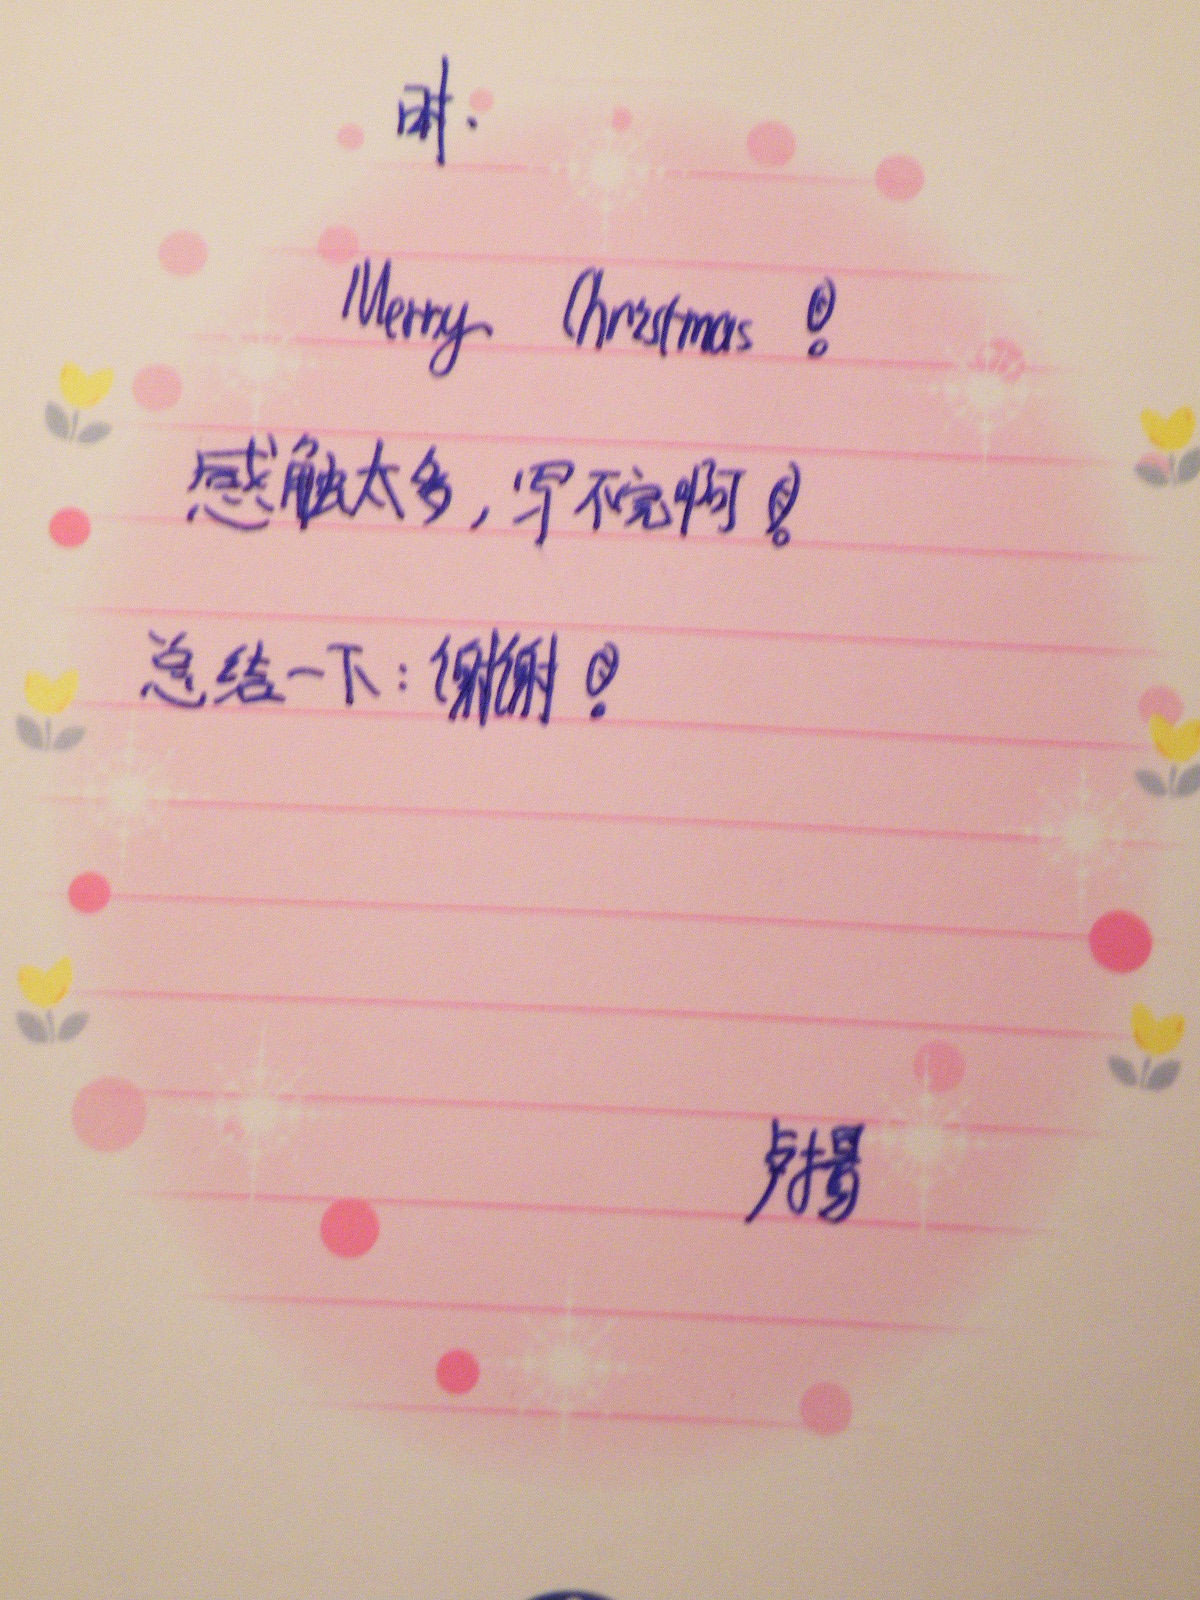 时.
Merry Christmas!
感触太多,写不完啊!
总结一下:谢谢!